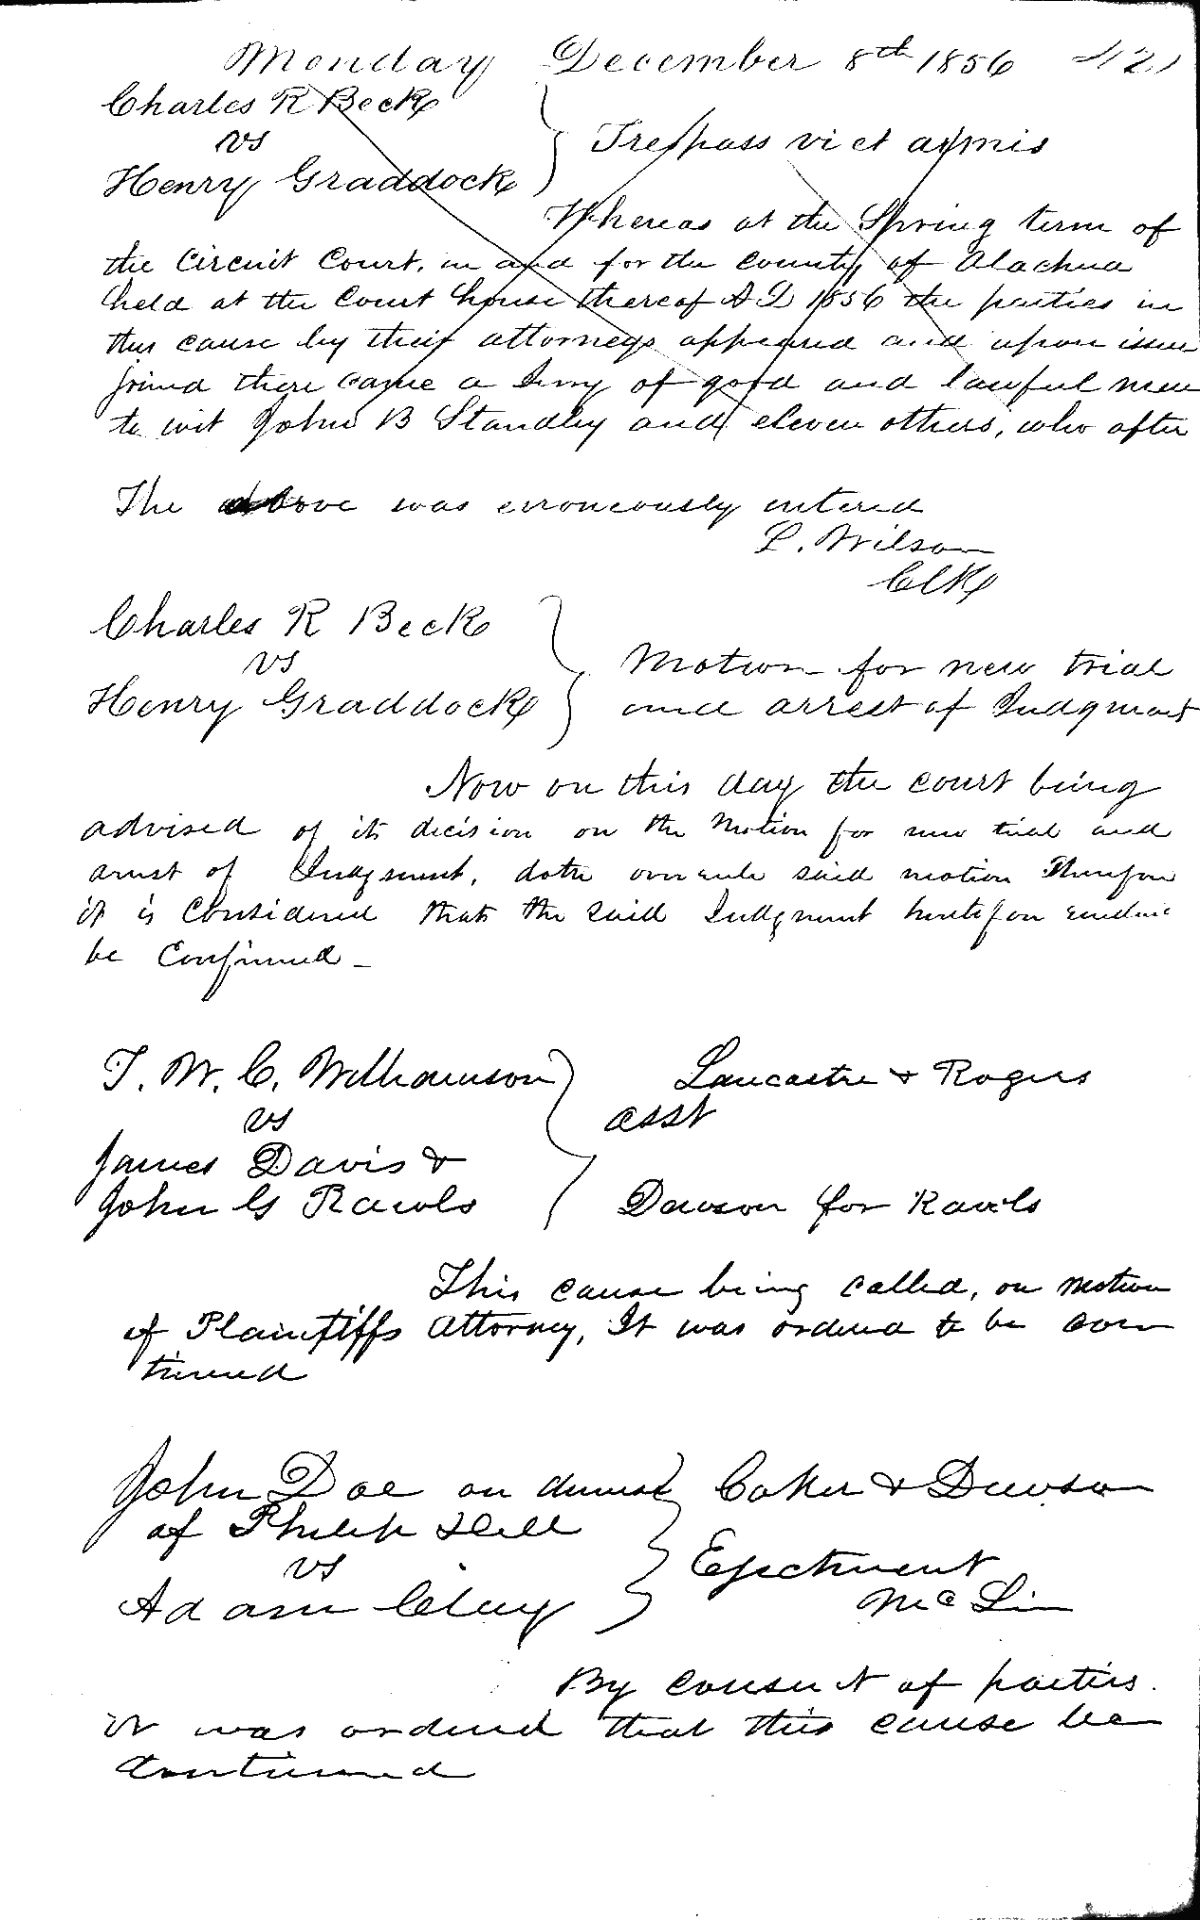 Monday December 8th 1856 421
Charles R Beck
vs
Henry Graddock
Trespass vi et armis
Whereas at the Spring term of
the Circuit Court, in and for the county of Alachua
held at the Court house thereof A D 1856 the parties in
this cause by their attorneys appeared and upon issue
joined there came a Jury of good and lawful men
to wit John B Standley and eleven others, who after
The above was erroneously entered
L. Wilson
Clk
Charles R Beck
vs
Henry Graddock
Motion for new trial
and arrest of Judgment
Now on this day the court being
advised of its decision on the Motion for new trial and
arrest of Judgment, doth overrule said motion Therefore
it is Considered that the said Judgment heretofore
be Confirmed -
T. W. C. Williamson
vs
James Davis &
John G Rawls
Lancaster & Rogers
asst
Dawson for Rawls
This cause being called, on motion
of Plaintiffs Attorney, It was ordered to be con
tinued
John Doe on demise
of Philip Dell
vs
Adam Clay
Coker & Dawson
Ejectment
McLin
By consent of parties
it was ordered that this cause be
Continued